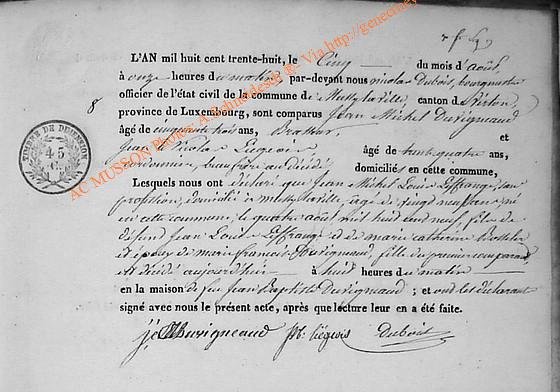 8
TIMBRE DE DIMENSION
45
L'AN mil huit cent trente-huit, le Cinq du mois d'août,
à onze heures du matin par-devant nous nicolas Dubois, bourgmestre
officier de l'état civil de la commune de Mussy la ville, canton de Virton,
province de Luxembourg, sont comparus Jean Michel Duvigneaud
âgé de cinquante trois ans, Brasseur, et
Jean Nicolas Liégeois âgé de trente quatre ans,
cordonnier, beau frère au décédé domiciliés en cette commune,
Lesquels nous ont déclaré que Jean Michel Louis Leffrange, sans
profession, domicilié à Mussy la ville, âgé de vingt neuf ans, né
en cette commune, le quatre août mil huit cent neuf, fils de
défunt Jean Louis Leffrange et de marie catherine
et époux de marie françoise Duvigneaud, fille du premier comparant
est décédé aujourd'hui à huit heures du matin
en la maison de feu Jean Baptiste Duvigneaud ; et ont les déclarants
signé avec nous le présent acte, après que lecture leur en a été faite.
Duvigneaud liégeois Dubois
AC MUSSON Photos A. Schneidesch ® - Via http://geneomey